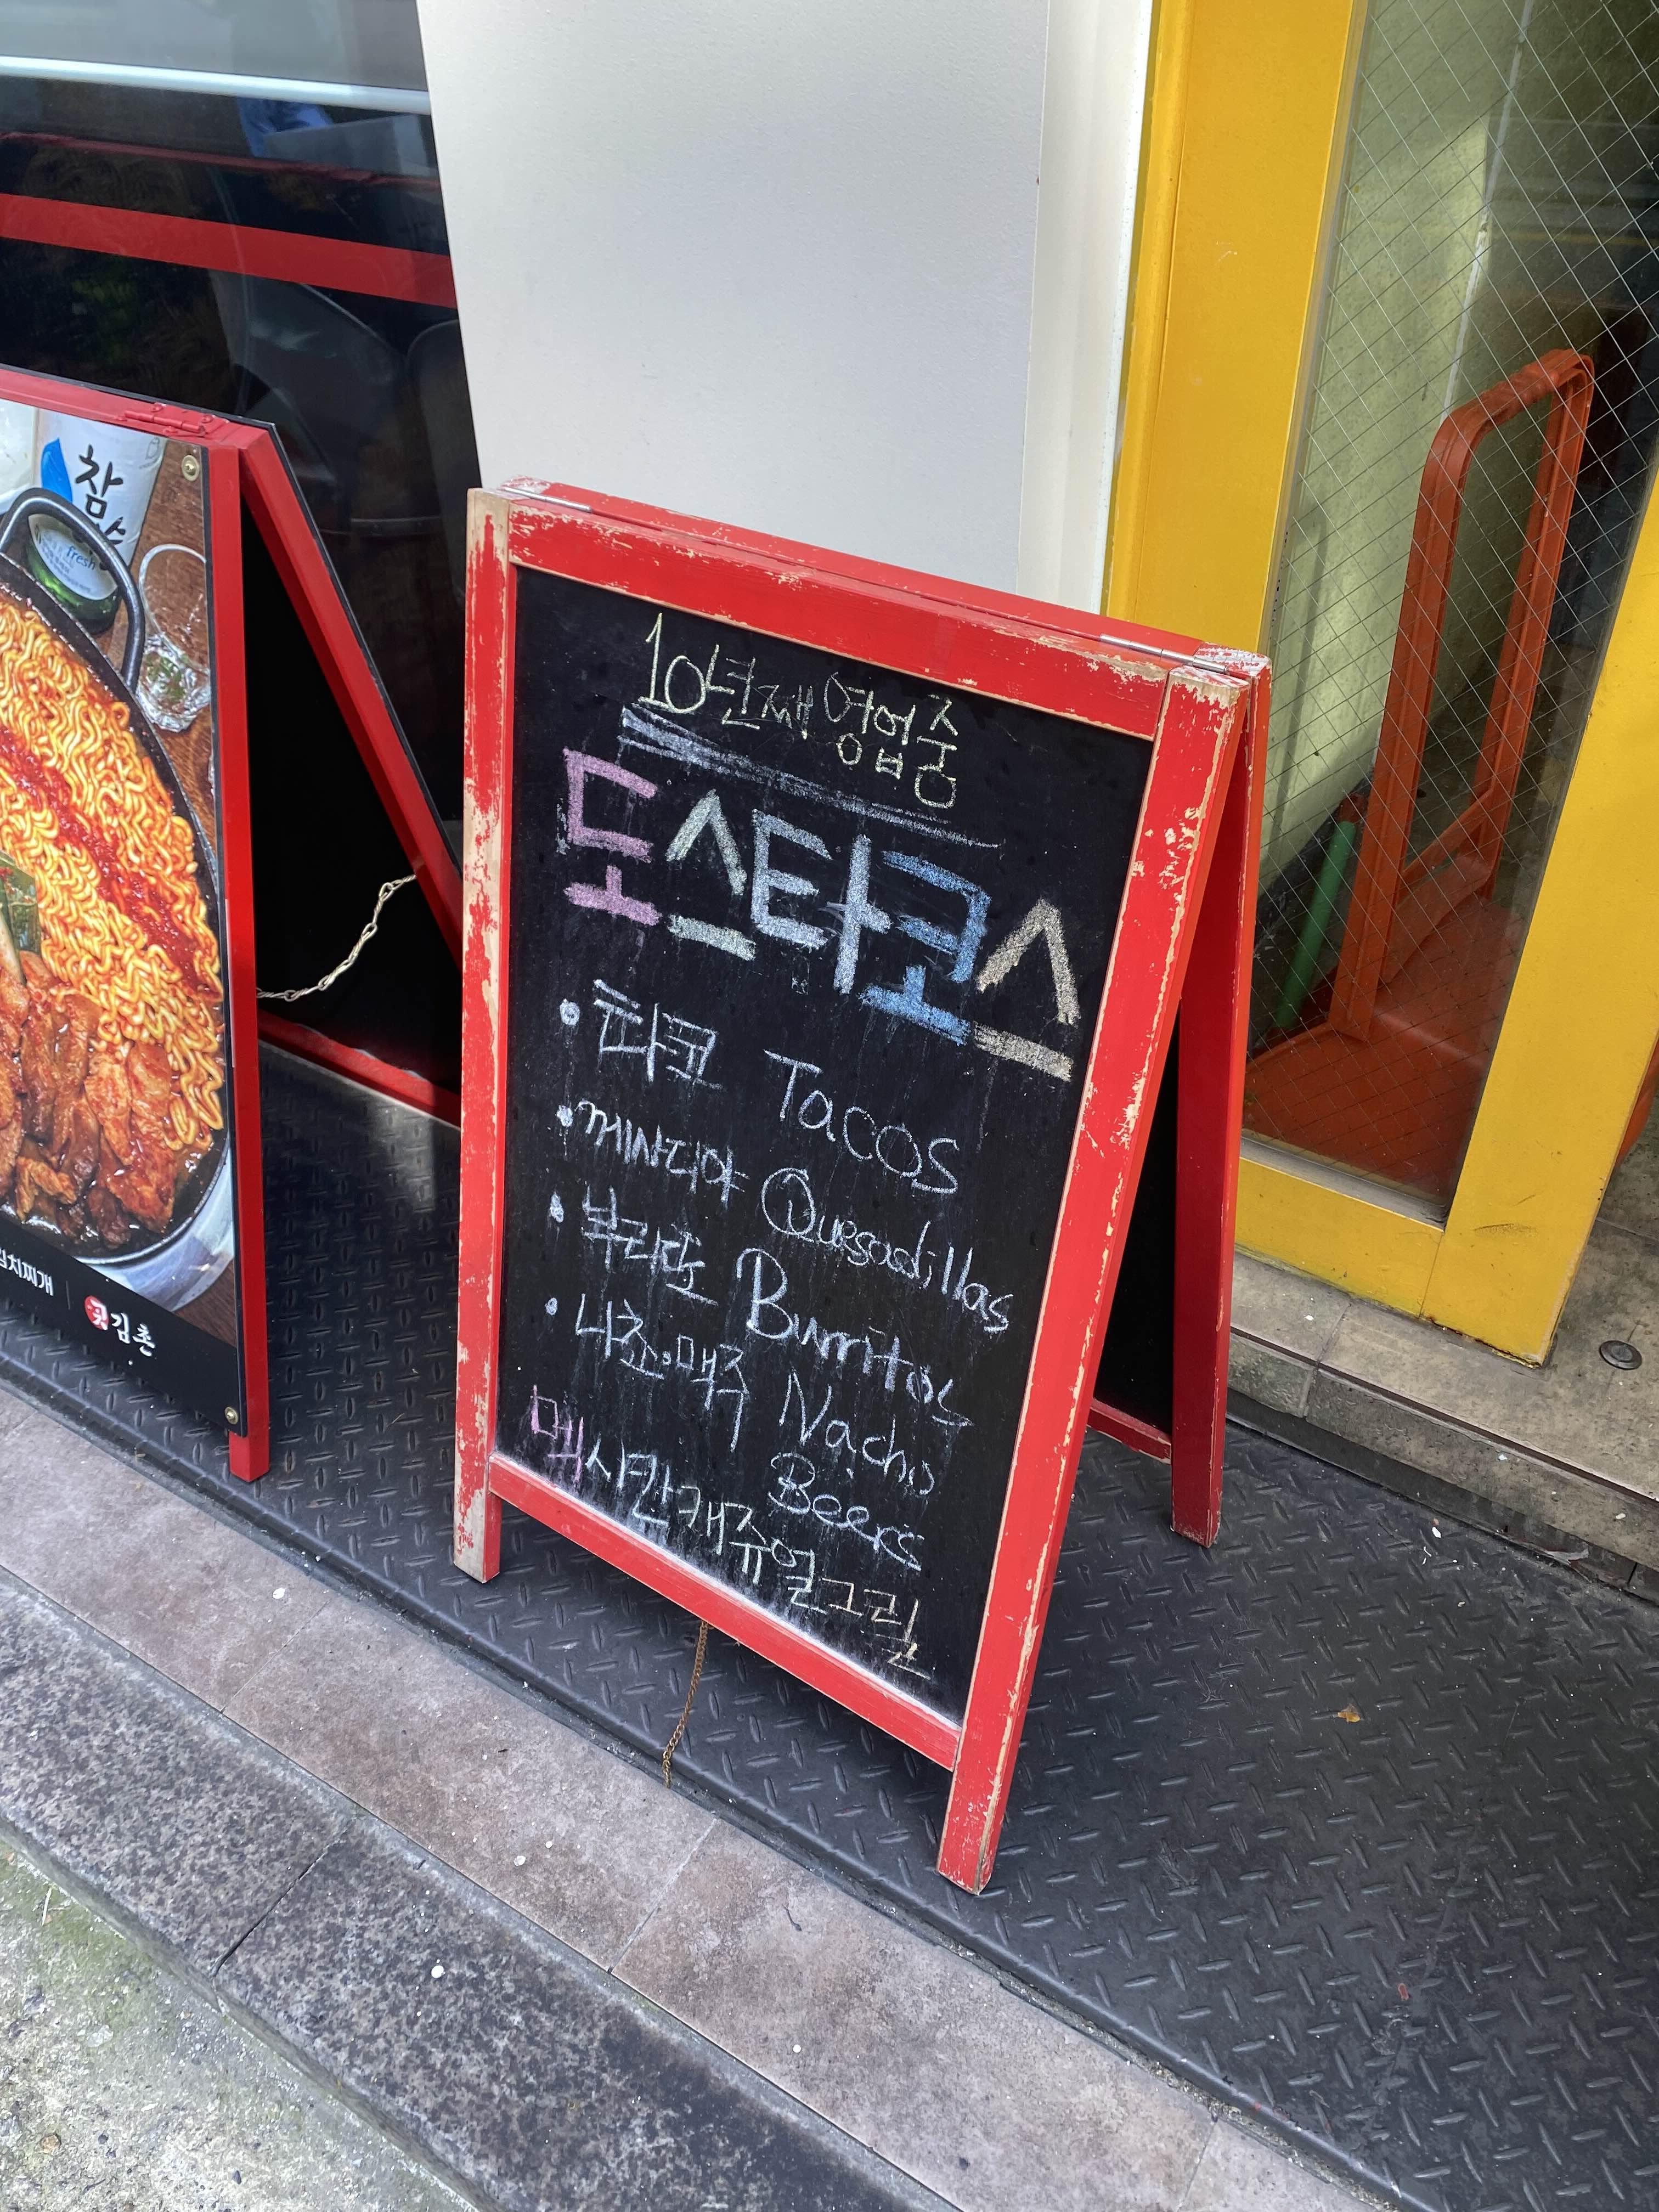 참
fresh
김치찌개
김촌
10년째 영업중
도스타코스
• 타코 Tacos
• 께사디아 Quesadillas
• 부리또 Burritos
• 나쵸·맥주 Nacho
Beers
멕시칸 캐쥬얼 그릴